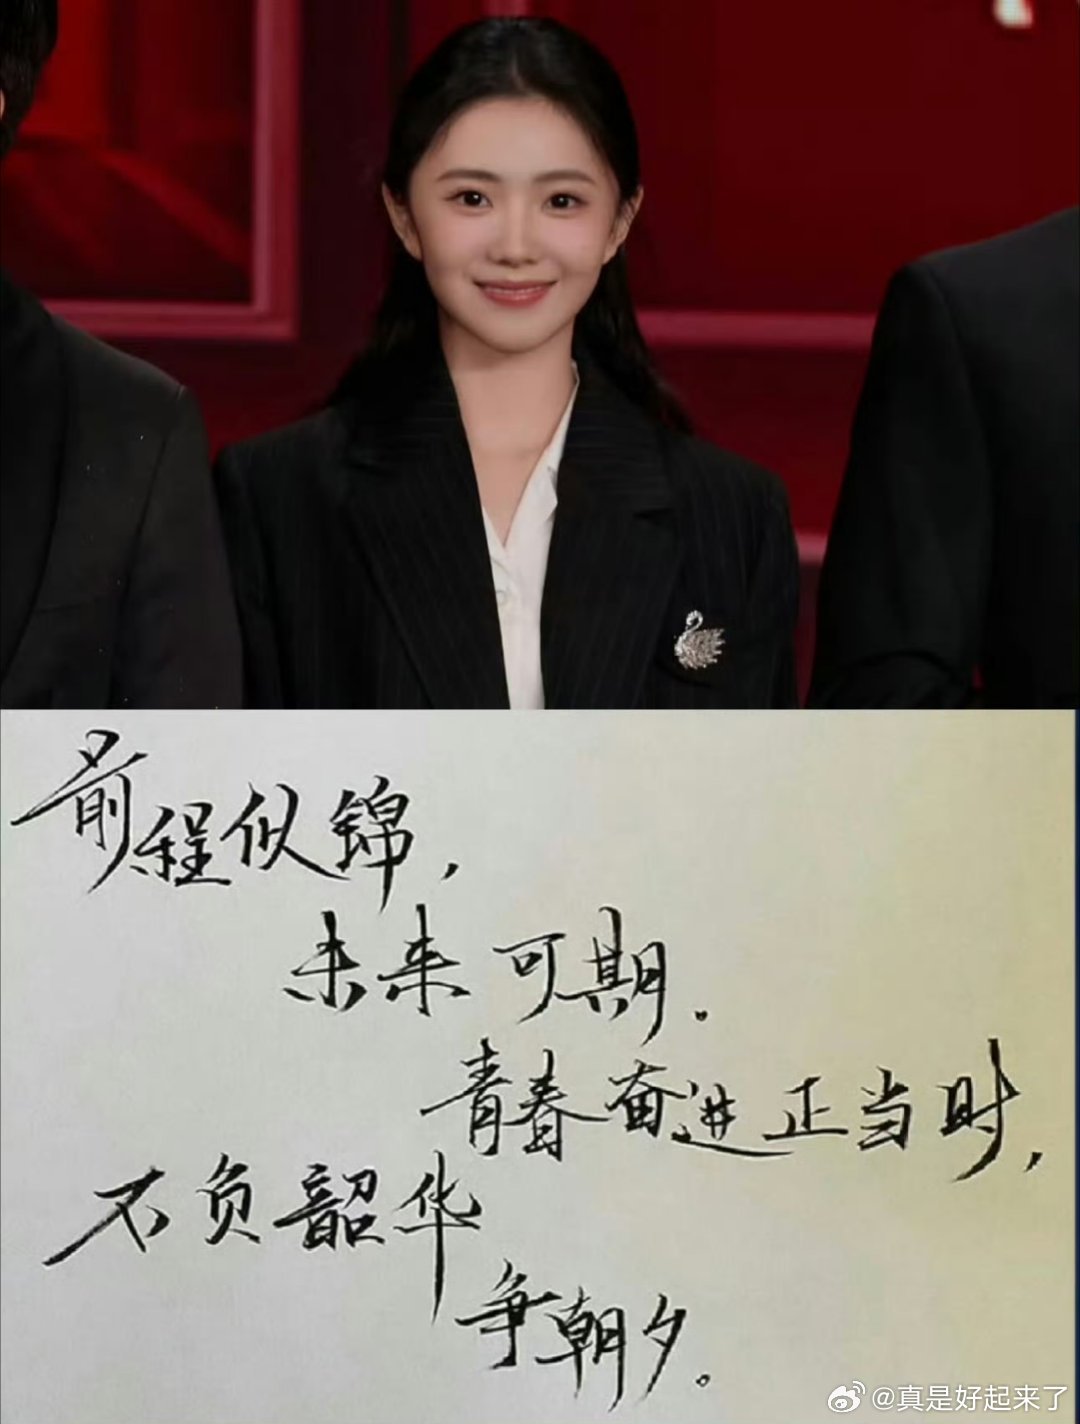 前程似锦，
未来可期。
青春奋进正当时，
不负韶华
争朝夕。
@真是好起来了